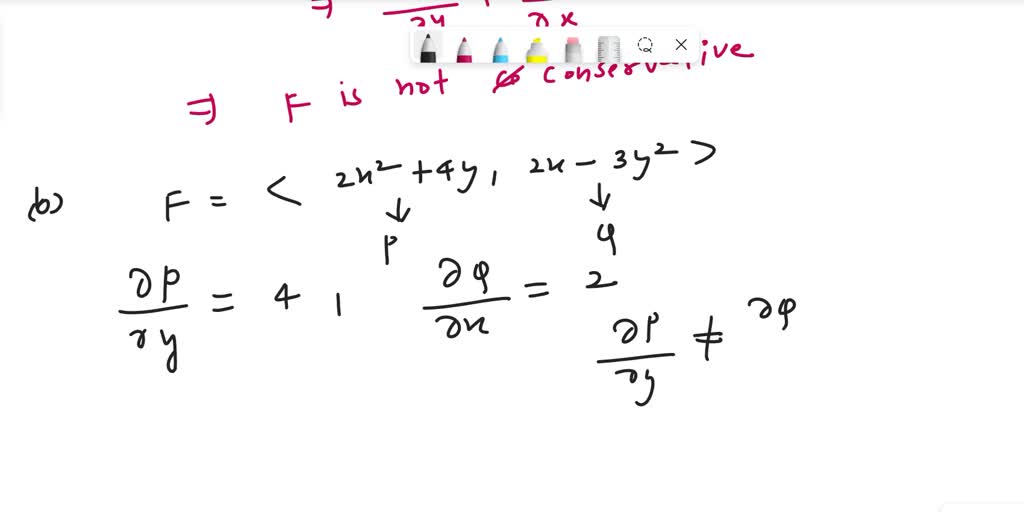 ⇒ ∂y ∂x
⇒ F is not conservative
(b) F = < 2x² + 4y, 2x − 3y² >
↓ ↓
P Q
∂P/∂y = 4 , ∂Q/∂x = 2
∂P/∂y ≠ ∂Q